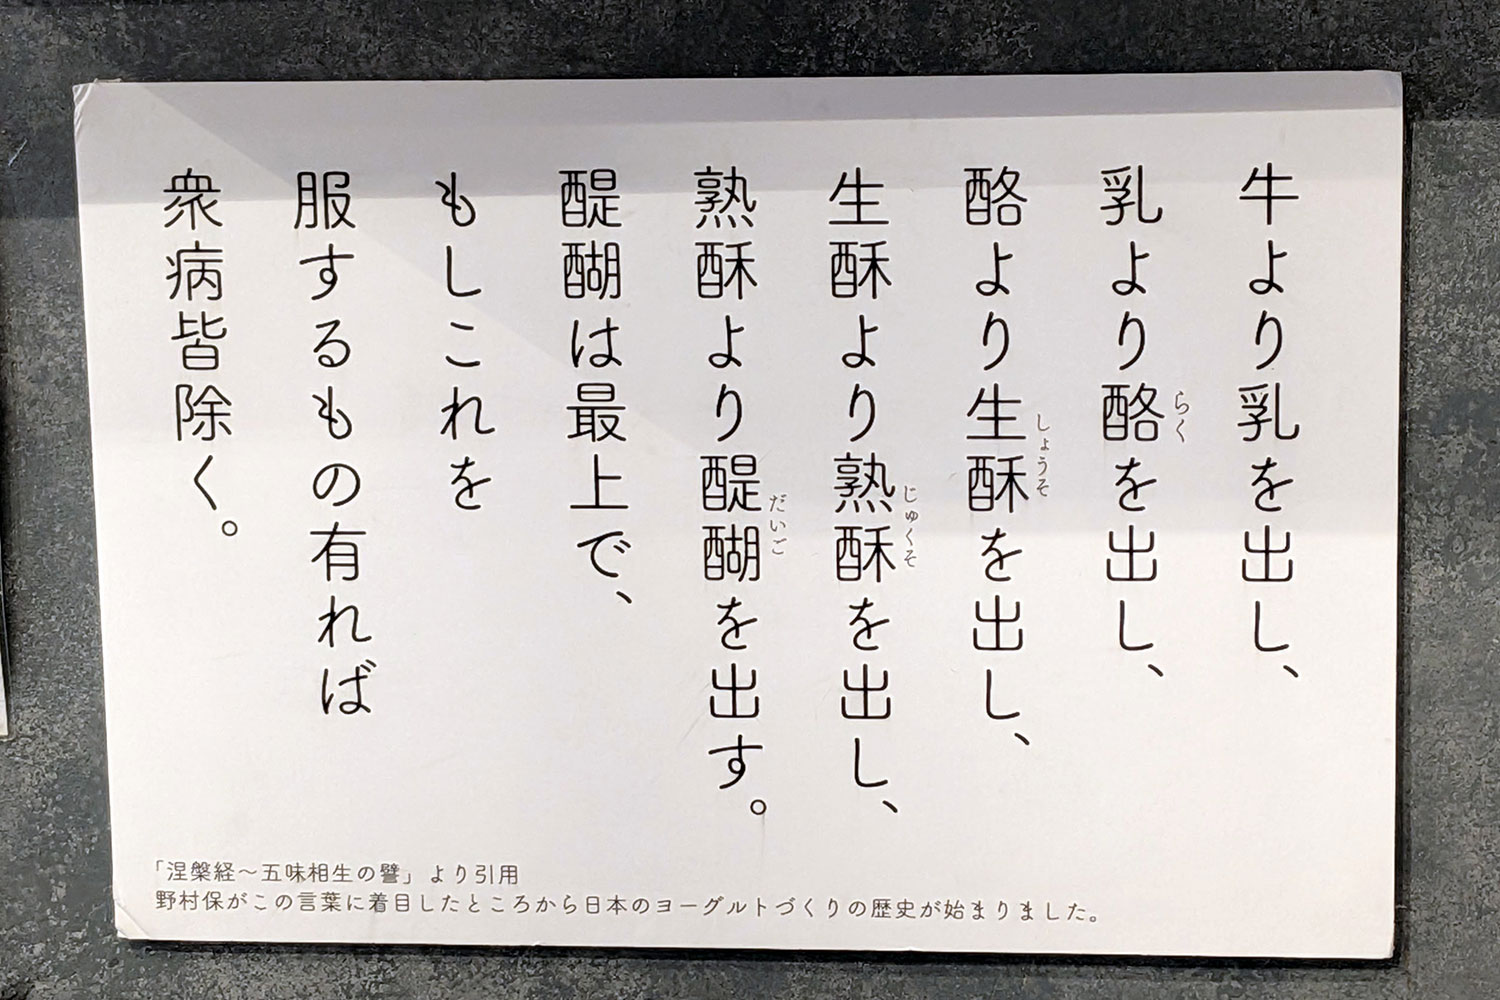 牛より乳を出し、
乳より酪を出し、
らく
酪より生酥を出し、
しょうそ
生酥より熟酥を出し、
じゅくそ
熟酥より醍醐を出す。
だいご
醍醐は最上で、
もしこれを
服するもの有れば
衆病皆除く。
「涅槃経～五味相生の譬」より引用
野村保がこの言葉に着目したところから日本のヨーグルトづくりの歴史が始まりました。